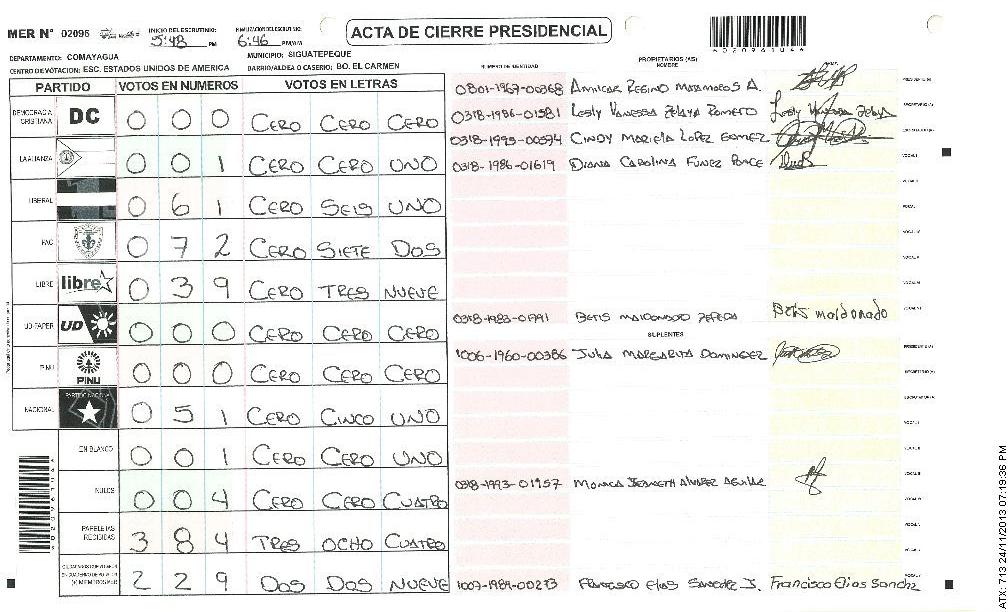 MER N° 02096
INICIO DEL ESCRUTINIO: 5:48 PM
FINALIZACION DEL ESCRUTINIO: 6:46 PM/A/M
ACTA DE CIERRE PRESIDENCIAL
4020961044
DEPARTAMENTO: COMAYAGUA
MUNICIPIO: SIGUATEPEQUE
CENTRO DE VOTACION: ESC. ESTADOS UNIDOS DE AMERICA
BARRIO/ALDEA O CASERIO: BO. EL CARMEN
PARTIDO VOTOS EN NUMEROS VOTOS EN LETRAS
DEMOCRACIA CRISTIANA DC 0 0 0 CERO CERO CERO
LA ALIANZA 0 0 1 CERO CERO UNO
LIBERAL 0 6 1 CERO SEIS UNO
PAC 0 7 2 CERO SIETE DOS
LIBRE libre 0 3 9 CERO TRES NUEVE
UD-FAPER UD 0 0 0 CERO CERO CERO
PINU PINU 0 0 0 CERO CERO CERO
NACIONAL PARTIDO NACIONAL 0 5 1 CERO CINCO UNO
EN BLANCO 0 0 1 CERO CERO UNO
NULOS 0 0 4 CERO CERO CUATRO
PAPELETAS RECIBIDAS 3 8 4 TRES OCHO CUATRO
2 2 9 DOS DOS NUEVE
NUMERO DE IDENTIDAD
PROPIETARIOS (AS)
NOMBRE
FIRMA
0801-1967-00368 AMILCAR REGINO MATAMOROS A. PRESIDENTE (A)
0318-1986-01581 LESLY VANESSA ZELAYA ROMERO Lesly Vanessa Zelaya SECRETARIO (A)
0318-1995-00594 CINDY MARIELA LOPEZ GOMEZ
0318-1986-01619 DIANA CAROLINA FUNEZ PONCE VOCAL I
0318-1983-01991 BETIS MALDONADO ZEPEDA Betis maldonado
SUPLENTES
1006-1960-00386 JULIA MARGARITA DOMINGUEZ PRESIDENTE (A)
SECRETARIO (A)
0318-1993-01957 MONICA JEANNETH ALVAREZ AGUILAR
1007-1989-00273 FRANCISCO ELIAS SANCHEZ J. Francisco Elias Sanchz
ATX 113 24/11/2013 07:19:36 PM